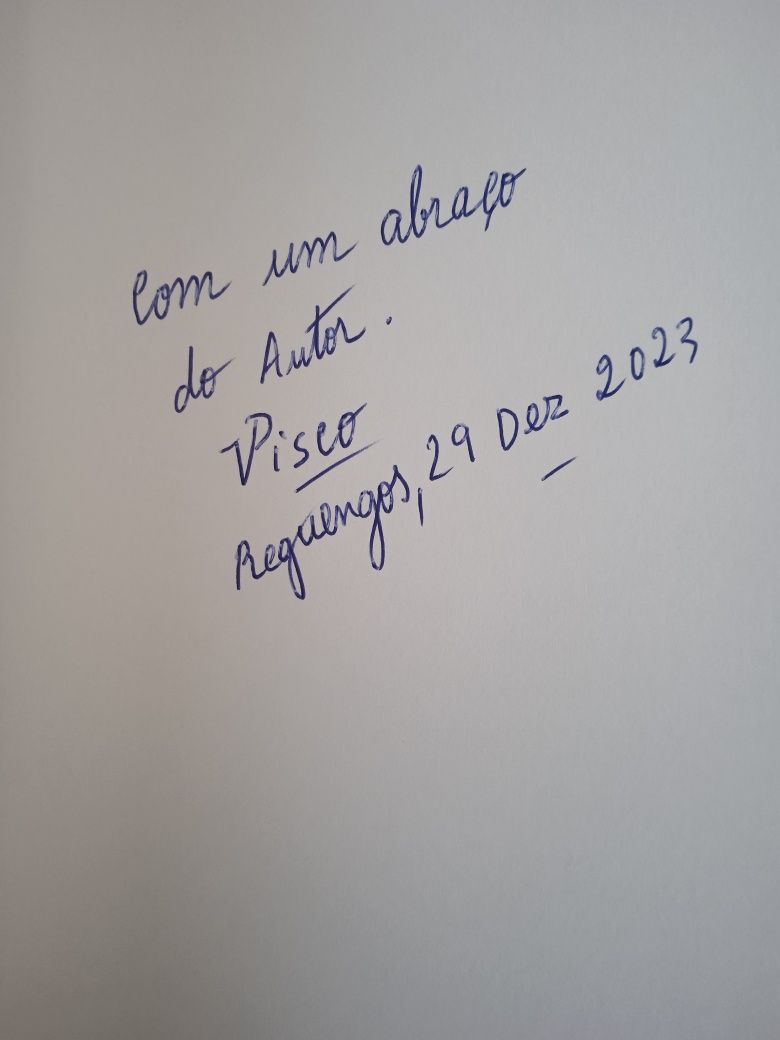 Com um abraço
do Autor.
Visco
Reguengos, 29 Dez 2023